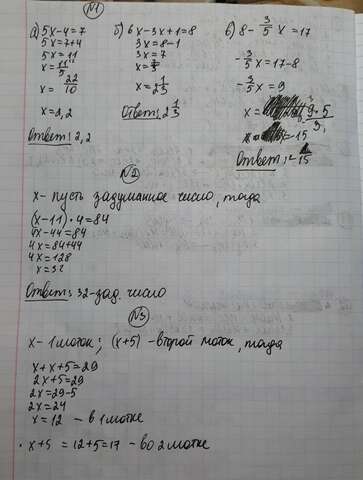 N1
а) 5x-4=7
5x=7+4
5x=11
x=11/5
x=22/10
x=2,2
Ответ: 2,2
б) 6x-3x+1=8
3x=8-1
3x=7
x=7/3
x=2 1/3
Ответ: 2 1/3
в) 8- 3/5 x=17
-3/5 x=17-8
-3/5 x=9
x= 9·5/3
x=-15
Ответ: -15
N2
x- пусть задуманное число, тогда
(x-11)·4=84
4x-44=84
4x=84+44
4x=128
x=32
Ответ: 32-зад. число
N3
x- 1 моток; (x+5) -второй моток, тогда
x+x+5=29
2x+5=29
2x=29-5
2x=24
x=12 - в 1 мотке
x+5 = 12+5=17 - во 2 мотке